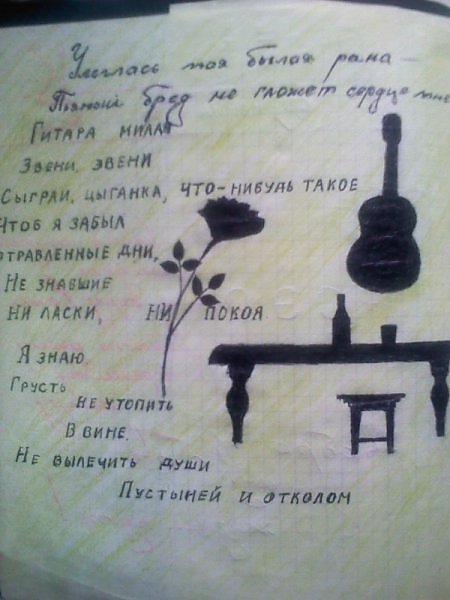 Улеглась моя былая рана –
Пьяный бред не гложет сердце мне
Гитара милая
Звени, звени
Сыграй, цыганка, что-нибудь такое
Чтоб я забыл
отравленные дни,
Не знавшие
Ни ласки, ни покоя.
Я знаю,
Грусть
не утопить
В вине.
Не вылечить души
Пустыней и отколом